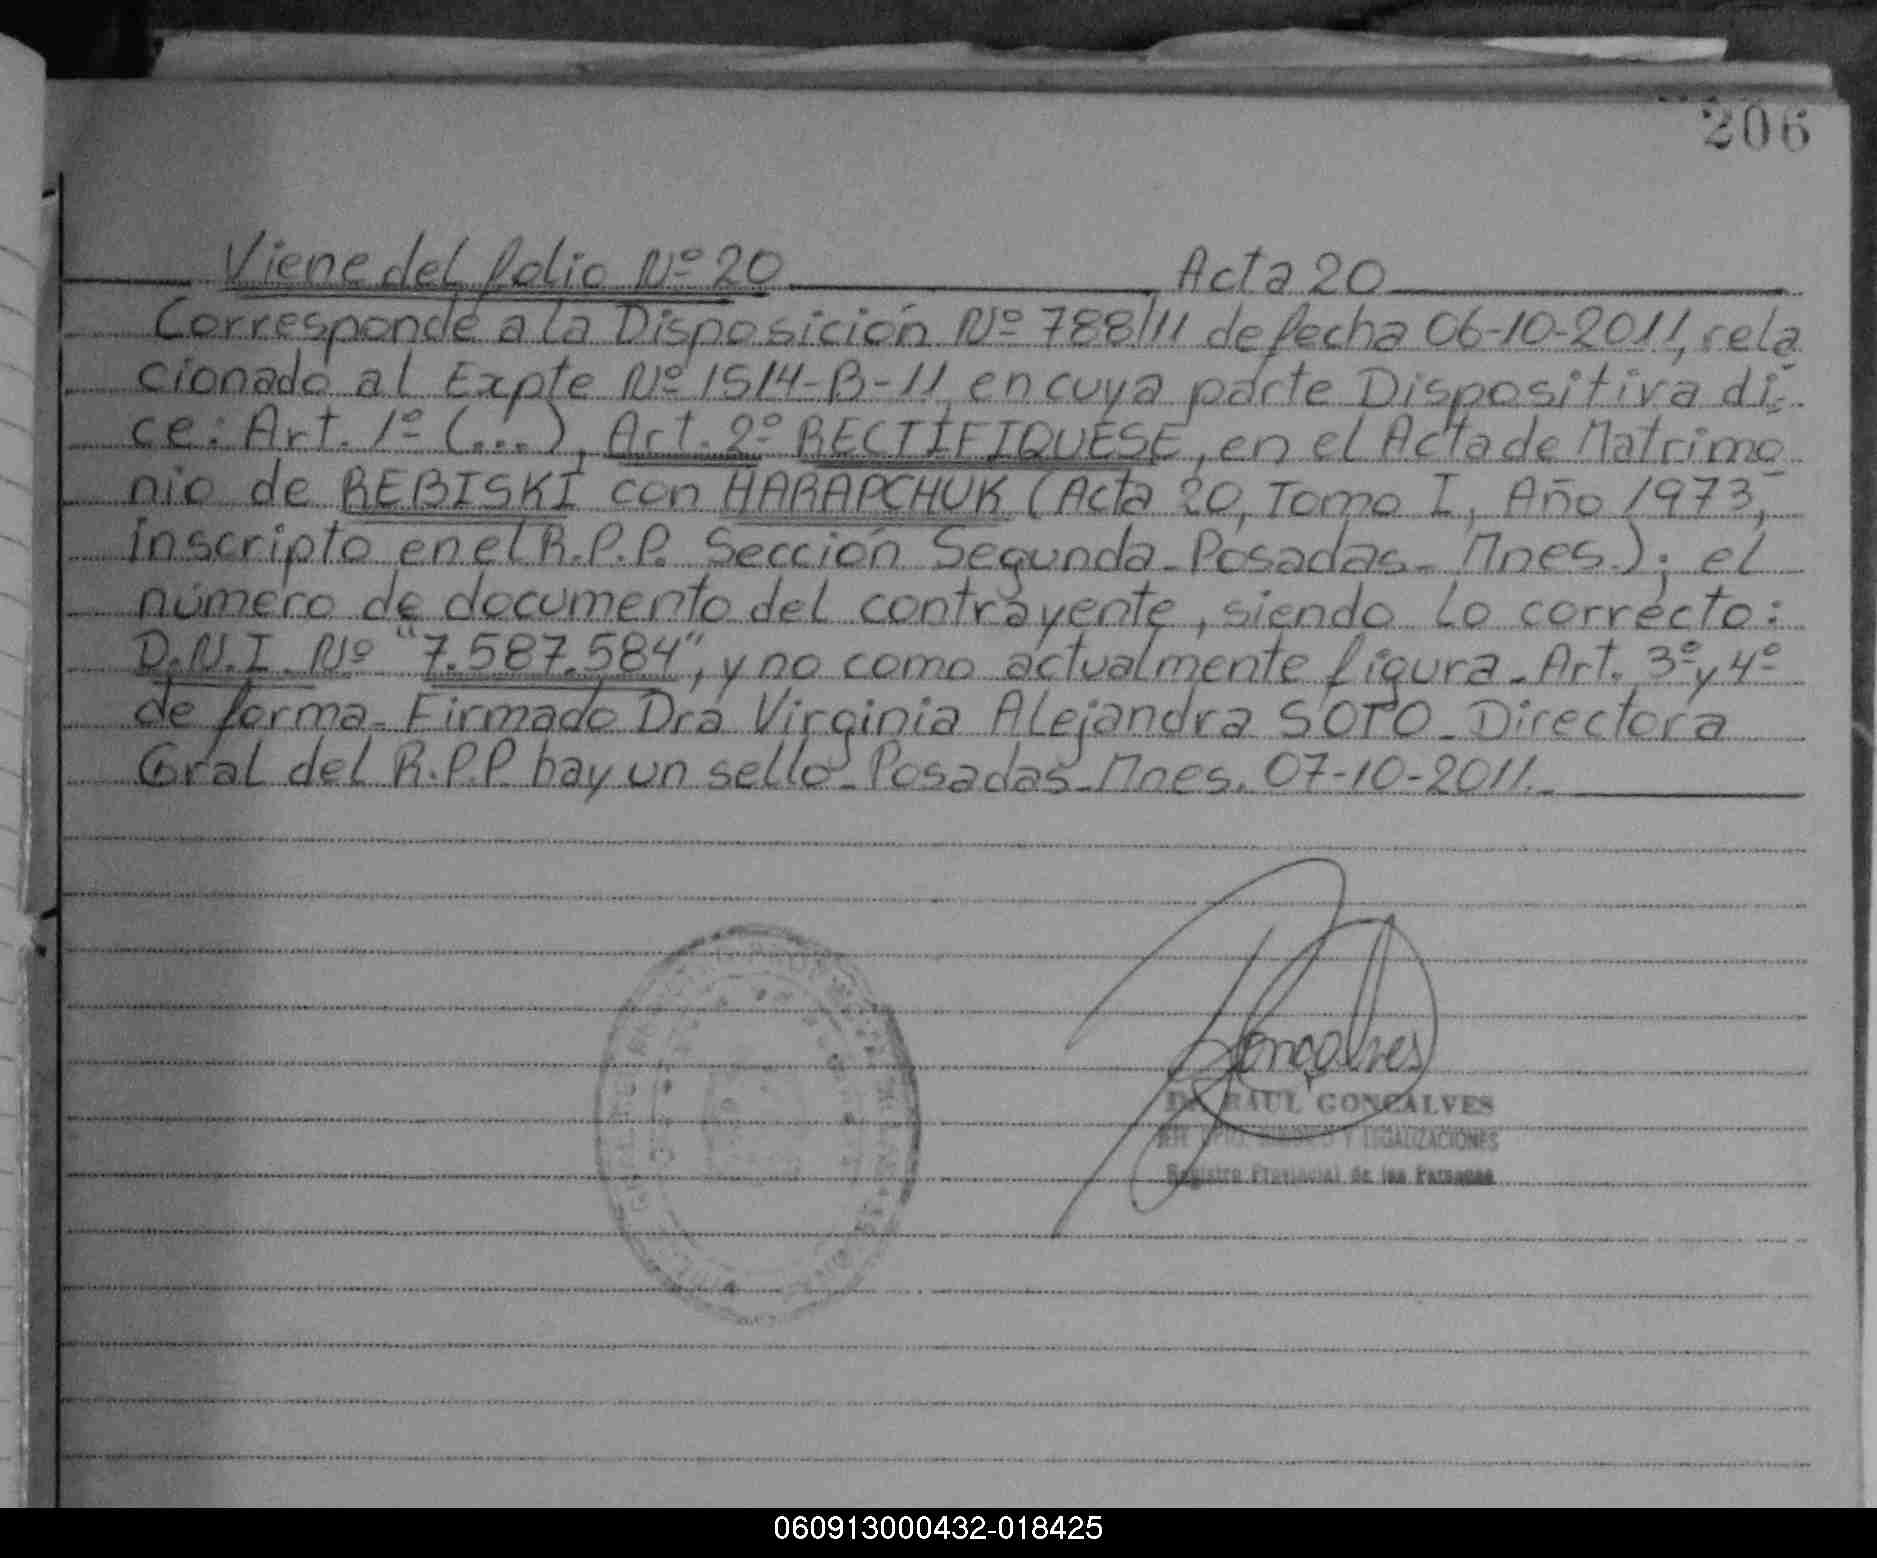 206
Viene del folio Nº 20 Acta 20
Corresponde a la Disposición Nº 788/11 de fecha 06-10-2011, rela
cionado al Expte Nº 1514-B-11 en cuya parte Dispositiva di-
ce: Art. 1º (...), Art. 2º RECTIFIQUESE, en el Acta de Matrimo
nio de REBISKI con HARAPCHUK (Acta 20, Tomo I, Año 1973,
inscripto en el R.P.P. Sección Segunda - Posadas - Mnes.); el
número de documento del contrayente, siendo lo correcto:
D.N.I. Nº "7.587.584", y no como actualmente figura - Art. 3º y 4º
de forma - Firmado Dra Virginia Alejandra SOTO - Directora
Gral del R.P.P hay un sello - Posadas - Mnes. 07-10-2011.-
Gonçalves
Dr. RAUL GONCALVES
Y LEGALIZACIONES
Registro Provincial de las Personas
060913000432-018425